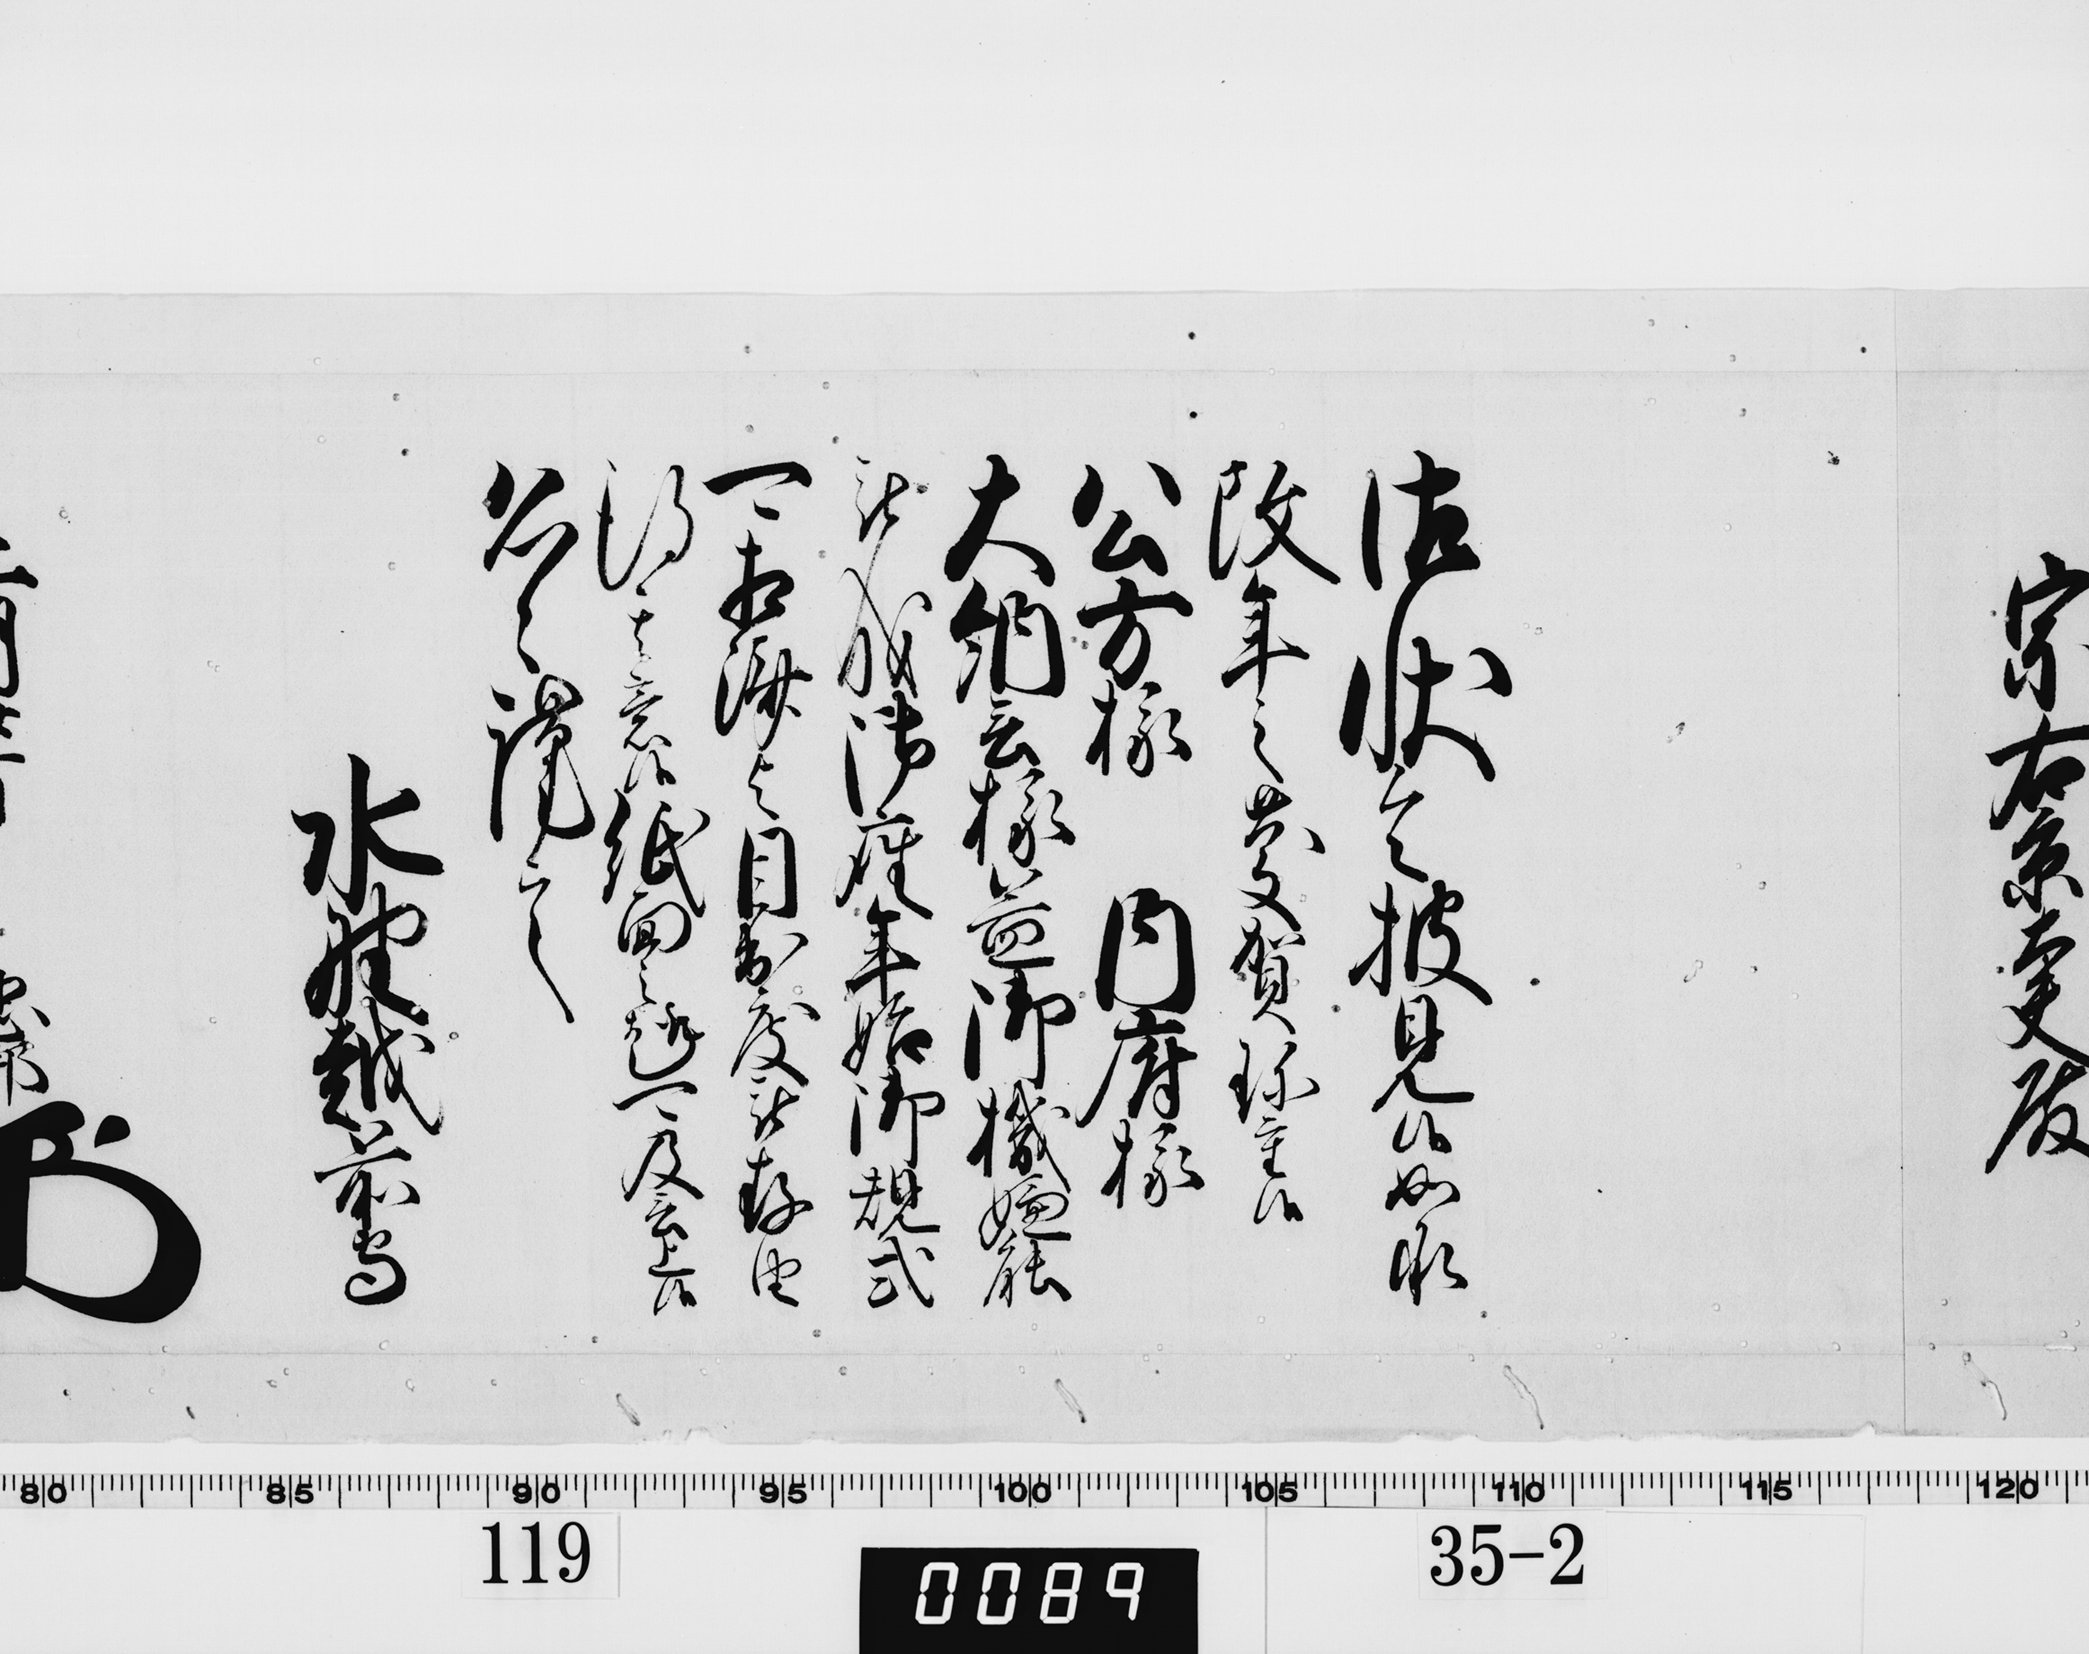 宗右京大夫殿
状令披見候如承
改年之慶賀珍重候
公方様 内府様
大納言様益御機嫌能
被成御座年始御規式
可相済与目出度被存由
得其意候紙面之趣可及言上候
恐々謹言
水野越前守
忠邦
119
0089
35-2
80 85 90 95 100 105 110 115 120